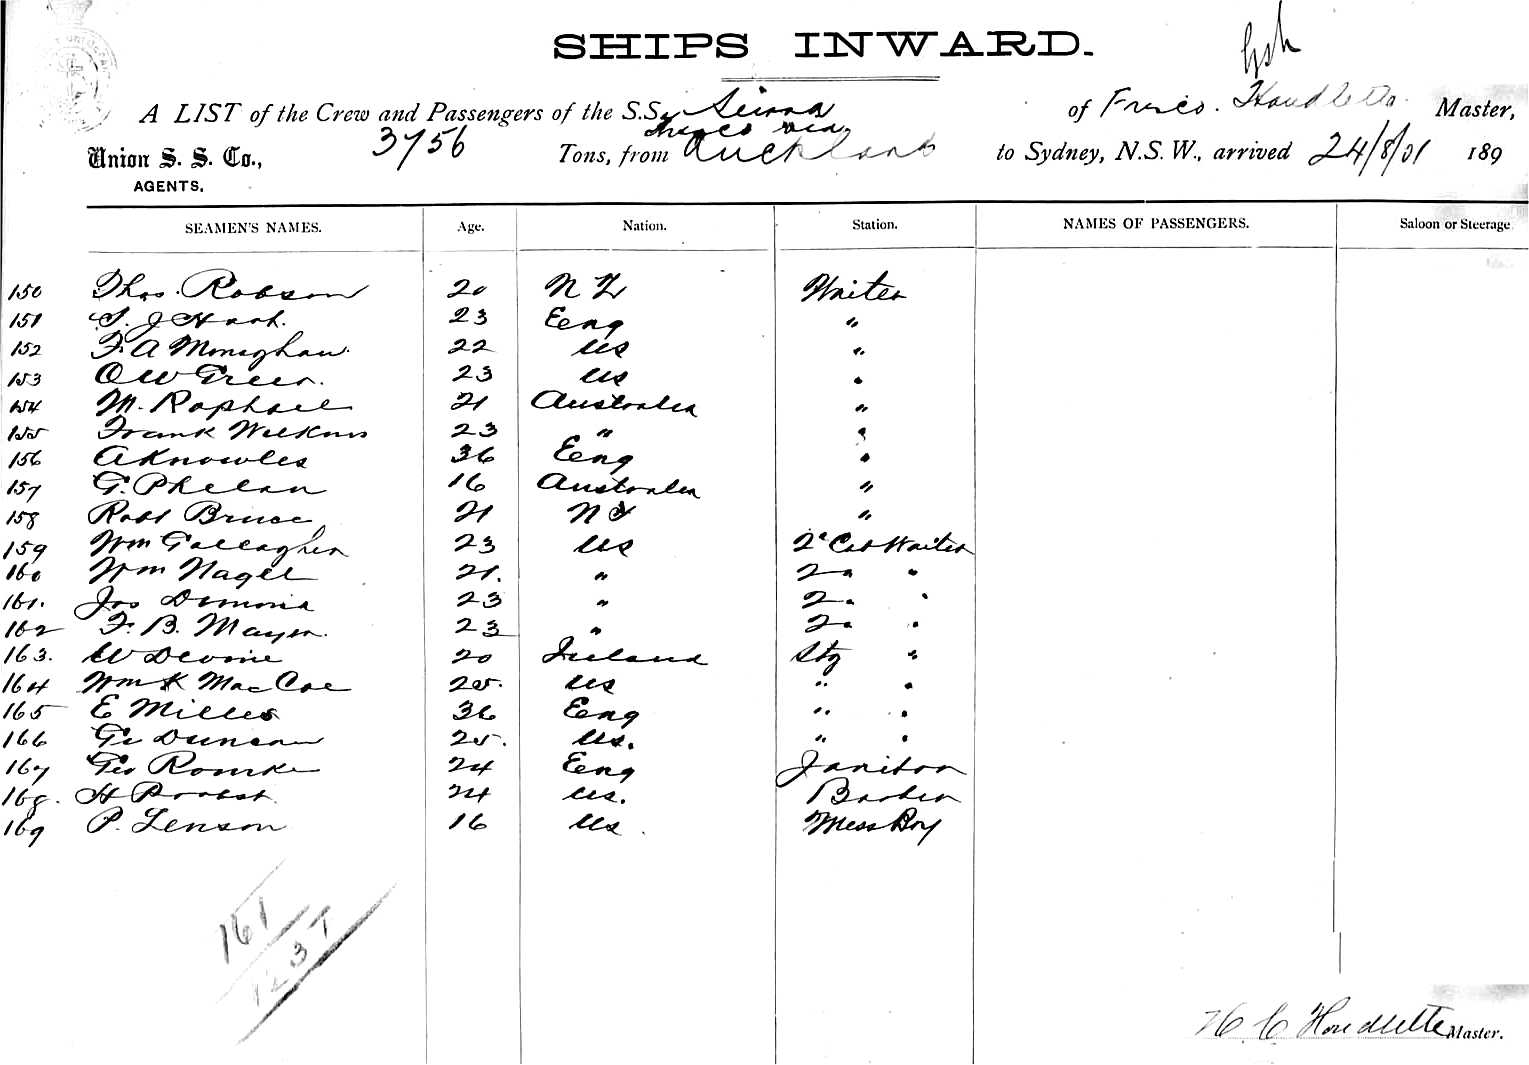 SHIPS INWARD.
A LIST of the Crew and Passengers of the S.S. Sierra of Frisco. Houdlette Master,
Union S. S. Co., 3756 Tons, from Frisco via Auckland to Sydney, N.S.W., arrived 24/8/01 189
AGENTS.
SEAMEN'S NAMES. Age. Nation. Station. NAMES OF PASSENGERS. Saloon or Steerage
150 Thos. Robson 20 N Z Waiter
151 S. J Hart. 23 Eeng "
152 F. A Moneghan 22 US "
153 O W Green. 23 US "
154 M. Raphael 21 Australia "
155 Frank Wilkins 23 " "
156 A Knowles 36 Eeng "
157 G. Phelan 16 Australia "
158 Robt Bruce 21 N Z "
159 Wm Gallagher 23 US 2d Cab Waiter
160 Wm Nagel 21. " 2d "
161. Jos 23 " 2d "
162 F. B. Mayer. 23 " 2d "
163. W Devine 20 Ireland Stg "
164 Wm K MacCoe 25. US " "
165 E Milles 36 Eeng " "
166 Ge Duncan 25. US. " "
167 Geo Romke 24 Eeng Janitor
168. H Probst. 24 US. Barber
169 P. Lenson 16 US. Mess Boy
161
1237
H C Houdlette Master.